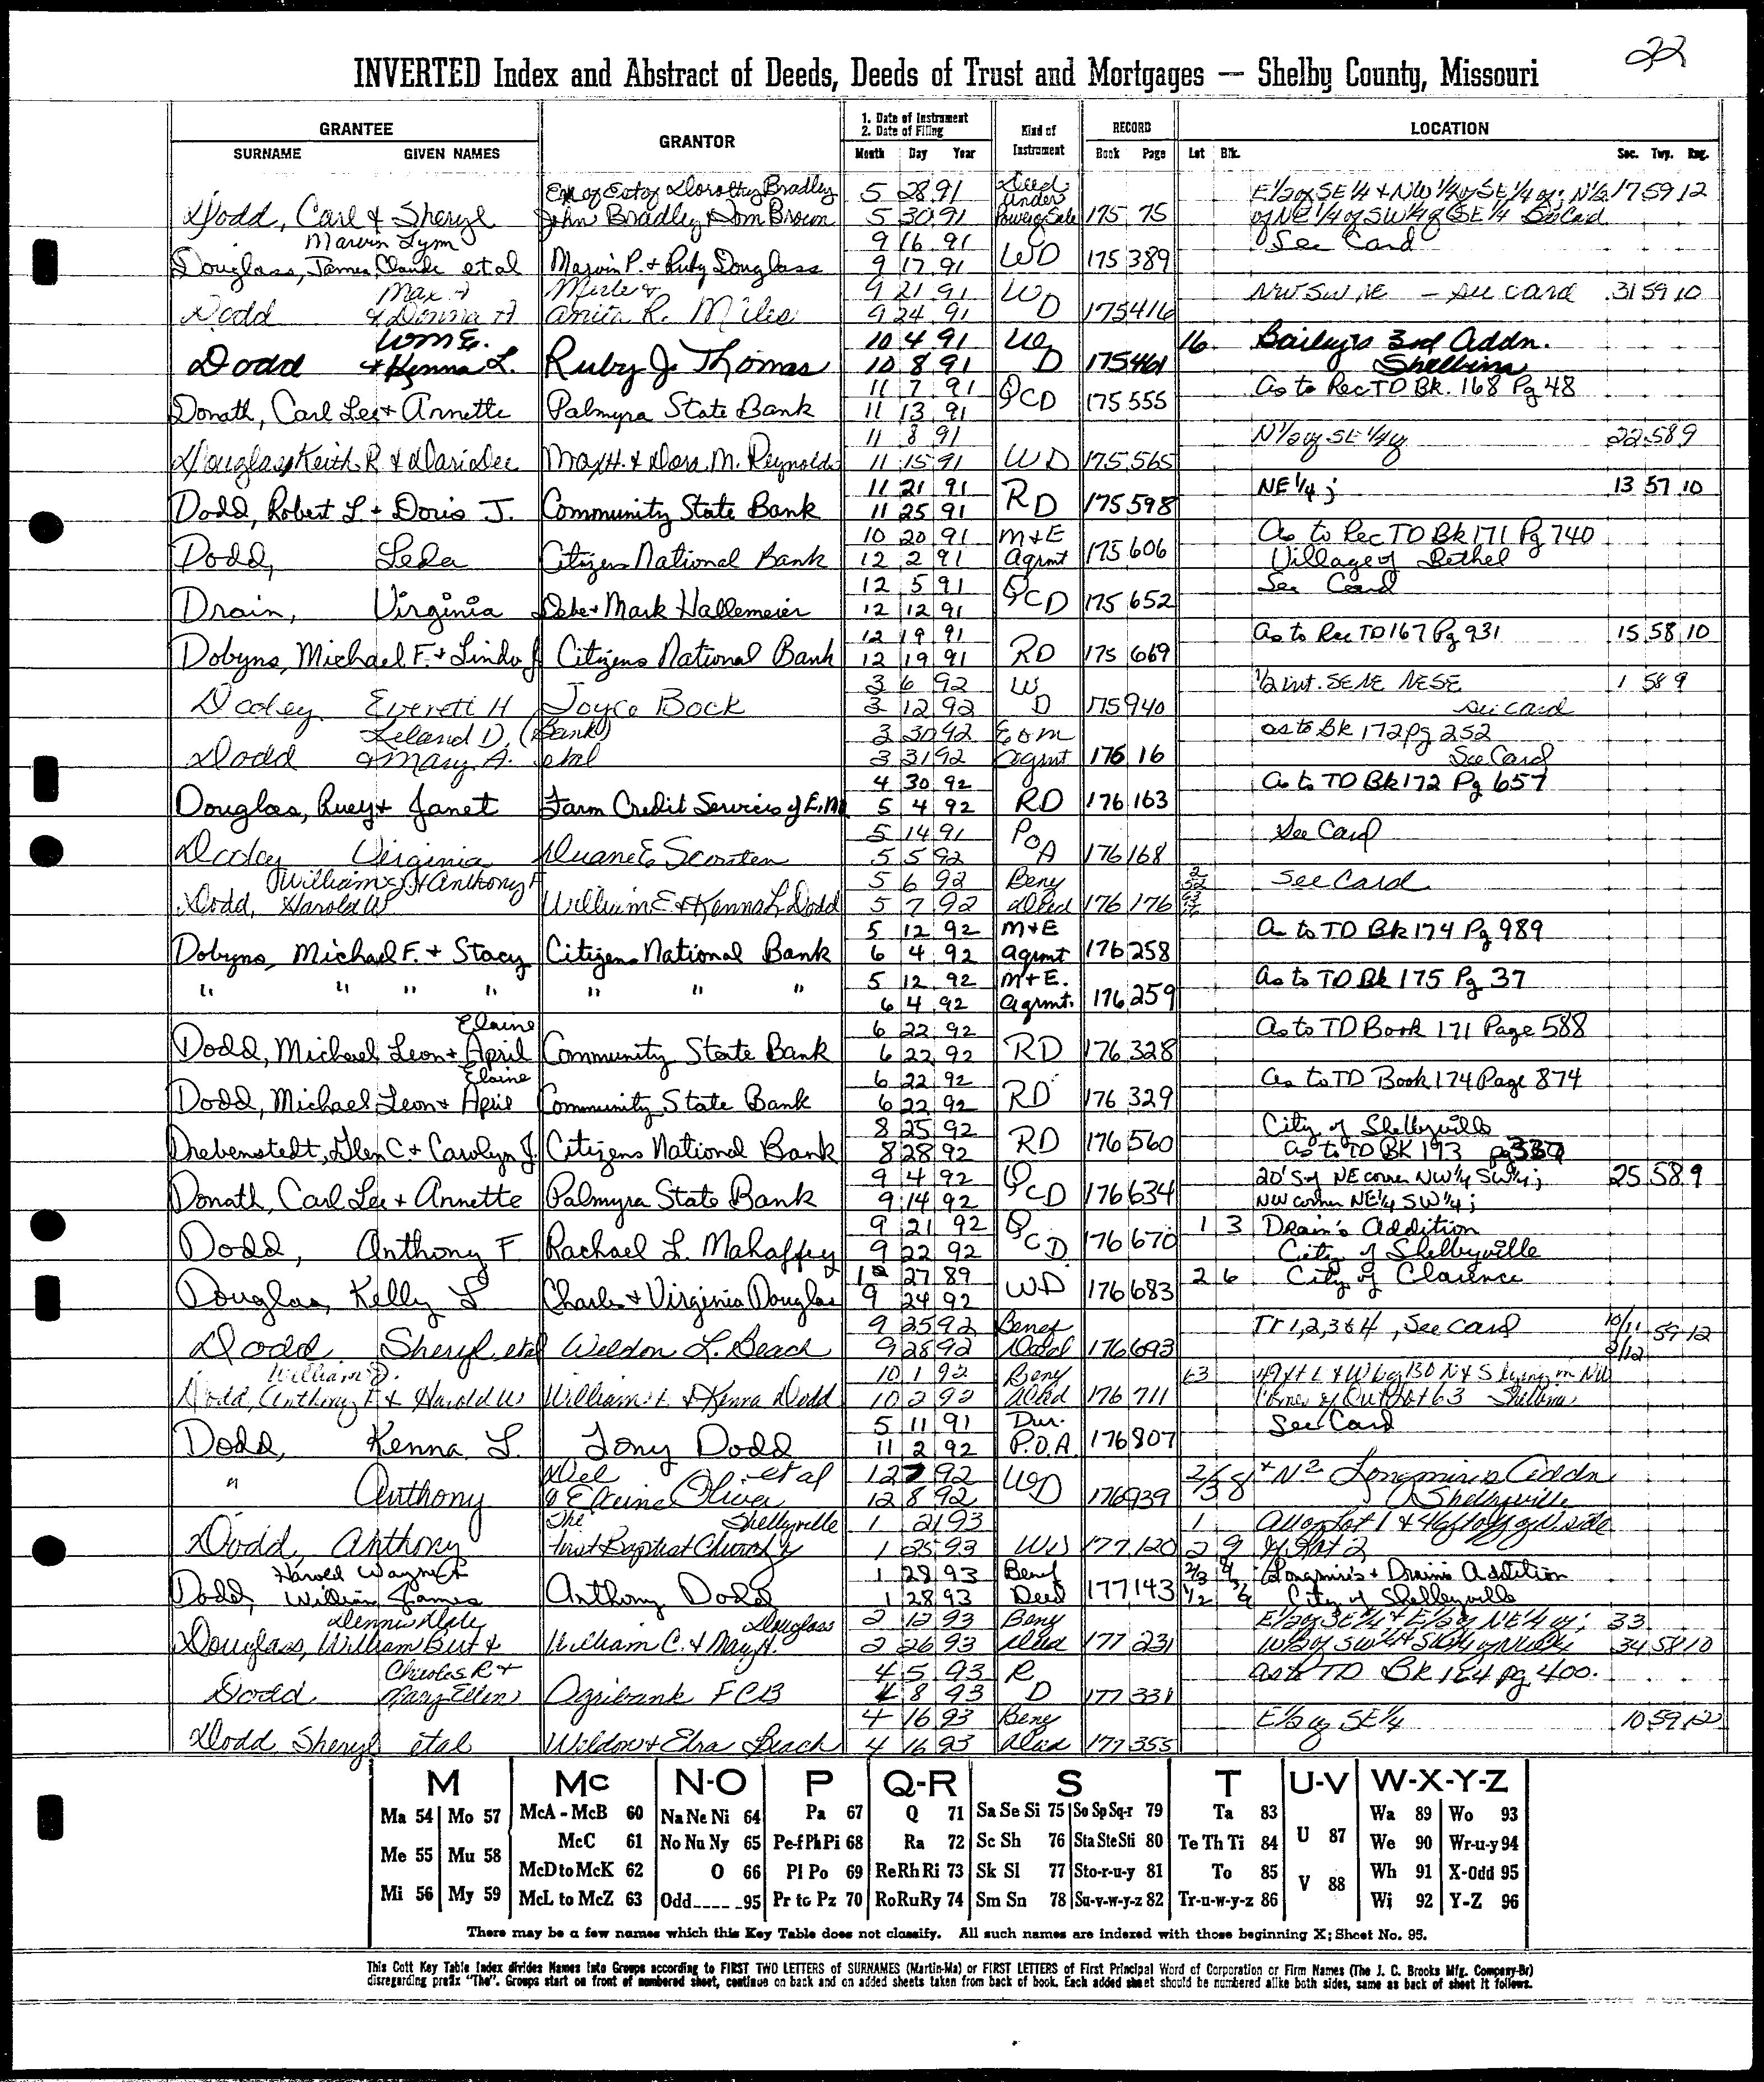 22
INVERTED Index and Abstract of Deeds, Deeds of Trust and Mortgages — Shelby County, Missouri
GRANTEE GRANTOR 1. Date of Instrument 2. Date of Filing Kind of Instrument RECORD LOCATION
SURNAME GIVEN NAMES Month Day Year Book Page Lot Blk. Sec. Twp. Rng.
Exr of Est of Dorothy Bradley 5 28 91 Deed under E1/2 of SE 1/4 + NW 1/4 of SE 1/4 of; N1/2 17 59 12
Dodd, Carl & Sheryl John Bradley & Tom Brown 5 30 91 Power of Sale 175 75 of NE 1/4 of SW 1/4 of SE 1/4 See Card
Marvin Lynn 9 16 91 See Card
Douglass, James Claude et al Marvin P. + Ruby Douglass 9 17 91 WD 175 389
Max + Merle + 9 21 91 W NW SW NE — see card 31 59 10
Dodd & Donna A R. Miles 9 24 91 D 175 416
Wm E. 10 4 91 W 16 Bailey's 3rd Addn.
Dodd + Kenna L. Ruby J. Thomas 10 8 91 D 175 461 Shelbina
11 7 91 As to Rec TD Bk. 168 Pg 48
Donath, Carl Lee + Annette Palmyra State Bank 11 13 91 QCD 175 555
11 8 91 N1/2 of SE 1/4 of 22 58 9
Douglas, Keith R + Dari Dee Max H. + Dora M. Reynolds 11 15 91 WD 175 565
11 21 91 NE 1/4; 13 57 10
Dodd, Robert L. + Doris J. Community State Bank 11 25 91 RD 175 598
10 20 91 M+E As to Rec TD Bk 171 Pg 740
Dodd, Leda Citizens National Bank 12 2 91 agrmt 175 606 Village of Bethel
12 5 91 See Card
Drain, Virginia Debe + Mark Hallemeier 12 12 91 QCD 175 652
12 19 91 As to Rec TD 167 Pg 931 15 58 10
Dobyns, Michael F. + Linda J Citizens National Bank 12 19 91 RD 175 669
3 6 92 W 1/2 int. SE NE NE SE 1 58 9
Dooley Everett H Joyce Bock 3 12 92 D 175 940 see card
Leland D. (Bank) 3 30 92 E o m as to Bk 172 pg 252
Dodd & Mary A. etal 3 31 92 agmt 176 16 See Card
4 30 92 As to TD Bk 172 Pg 657
Douglas, Ruey + Janet Farm Credit Services of E. Mo 5 4 92 RD 176 163
5 14 91 PO See Card
Dooley Virginia Duane E Scoville 5 5 92 A 176 168
William J. + Anthony F 5 6 92 Beny See Card
Dodd, Harold W William E. + Kenna L Dodd 5 7 92 Deed 176 176
5 12 92 M+E As to TD Bk 174 Pg 989
Dobyns, Michael F. + Stacy Citizens National Bank 6 4 92 agrmt 176 258
5 12 92 M+E. As to TD Bk 175 Pg 37
" " " " " " " 6 4 92 agrmt. 176 259
Elaine 6 22 92 As to TD Book 171 Page 588
Dodd, Michael Leon + April Community State Bank 6 22 92 RD 176 328
Elaine 6 22 92 As to TD Book 174 Page 874
Dodd, Michael Leon + April Community State Bank 6 22 92 RD 176 329
8 25 92 City of Shelbyville
Drebenstedt, Glen C. + Carolyn J. Citizens National Bank 8 28 92 RD 176 560 As to TD BK 173
9 4 92 20' S of NE corner NW 1/4 SW 1/4; 25 58 9
Donath, Carl Lee + Annette Palmyra State Bank 9 14 92 QCD 176 634 NW corner NE 1/4 SW 1/4;
9 21 92 1 3 Drain's Addition
Dodd, Anthony F Rachael L. Mahaffey 9 22 92 QCD 176 670 City of Shelbyville
12 27 89 2 6 City of Clarence
Douglas, Kelly L Charles + Virginia Douglas 9 24 92 WD 176 683
9 25 92 Benef Tr 1, 2, 3 & 4, See card 10/11 59 12
Dodd Sheryl etal Weldon L. Beach 9 28 92 Deed 176 693
William J. 10 1 92 Beny 63 49 ft E + W by 130 N + S lying in NW
Dodd, Anthony F + Harold W William E. + Kenna Dodd 10 2 92 Deed 176 711 Corner of Outlot 63 Shelbina
5 11 91 Dur. See Card
Dodd, Kenna L. Tony Dodd 11 2 92 P.O.A. 176 807
Del et al 12 7 92 2/3 8 + N 2 Longmire's Addn
" Anthony & Elaine Oliver 12 8 92 WD 176 939 Shelbyville
The Shelbyville 1 21 93 1 All of Lot 1 & 46 ft off of N side
Dodd, Anthony First Baptist Church of 1 25 93 WD 177 120 2 9 of Lot 2
Harold Wayne & 1 28 93 Benef Longmire's + Drain's Addition
Dodd, William James Anthony Dodd 1 28 93 Deed 177 143 City of Shelbyville
Dennis Dale Douglass 2 12 93 Beny E1/2 of SE 1/4 + E1/2 of NE 1/4 of; 33
Douglass, William Burt & William C. + Mary A. 2 26 93 Deed 177 231 34 58 10
Charles R + 4 5 93 R as to TD Bk 164 pg 400.
Dodd Mary Ellen Agribank FCB 4 8 93 D 177 331
4 16 93 Beny E1/2 of SE 1/4 10 59 12
Dodd Sheryl etal Weldon + Edra Beach 4 16 93 Deed 177 355
M Mc N-O P Q-R S T U-V W-X-Y-Z
Ma 54 Mo 57 McA - McB 60 Na Ne Ni 64 Pa 67 Q 71 Sa Se Si 75 So Sp Sq-r 79 Ta 83 U 87 Wa 89 Wo 93
Me 55 Mu 58 McC 61 No Nu Ny 65 Pe-f Ph Pi 68 Ra 72 Sc Sh 76 Sta Ste Sti 80 Te Th Ti 84 We 90 Wr-u-y 94
McD to McK 62 O 66 Pl Po 69 Re Rh Ri 73 Sk Sl 77 Sto-r-u-y 81 To 85 V 88 Wh 91 X-Odd 95
Mi 56 My 59 McL to McZ 63 Odd 95 Pr to Pz 70 Ro Ru Ry 74 Sm Sn 78 Su-v-w-y-z 82 Tr-u-w-y-z 86 Wi 92 Y-Z 96
There may be a few names which this Key Table does not classify. All such names are indexed with those beginning X; Sheet No. 95.
This Cott Key Table Index divides Names into Groups according to FIRST TWO LETTERS of SURNAMES (Martin-Ma) or FIRST LETTERS of First Principal Word of Corporation or Firm Names (The J. C. Brooks Mfg. Company-Br)
disregarding prefix "The". Groups start on front of numbered sheet, continue on back and on added sheets taken from back of book. Each added sheet should be numbered alike both sides, same as back of sheet it follows.